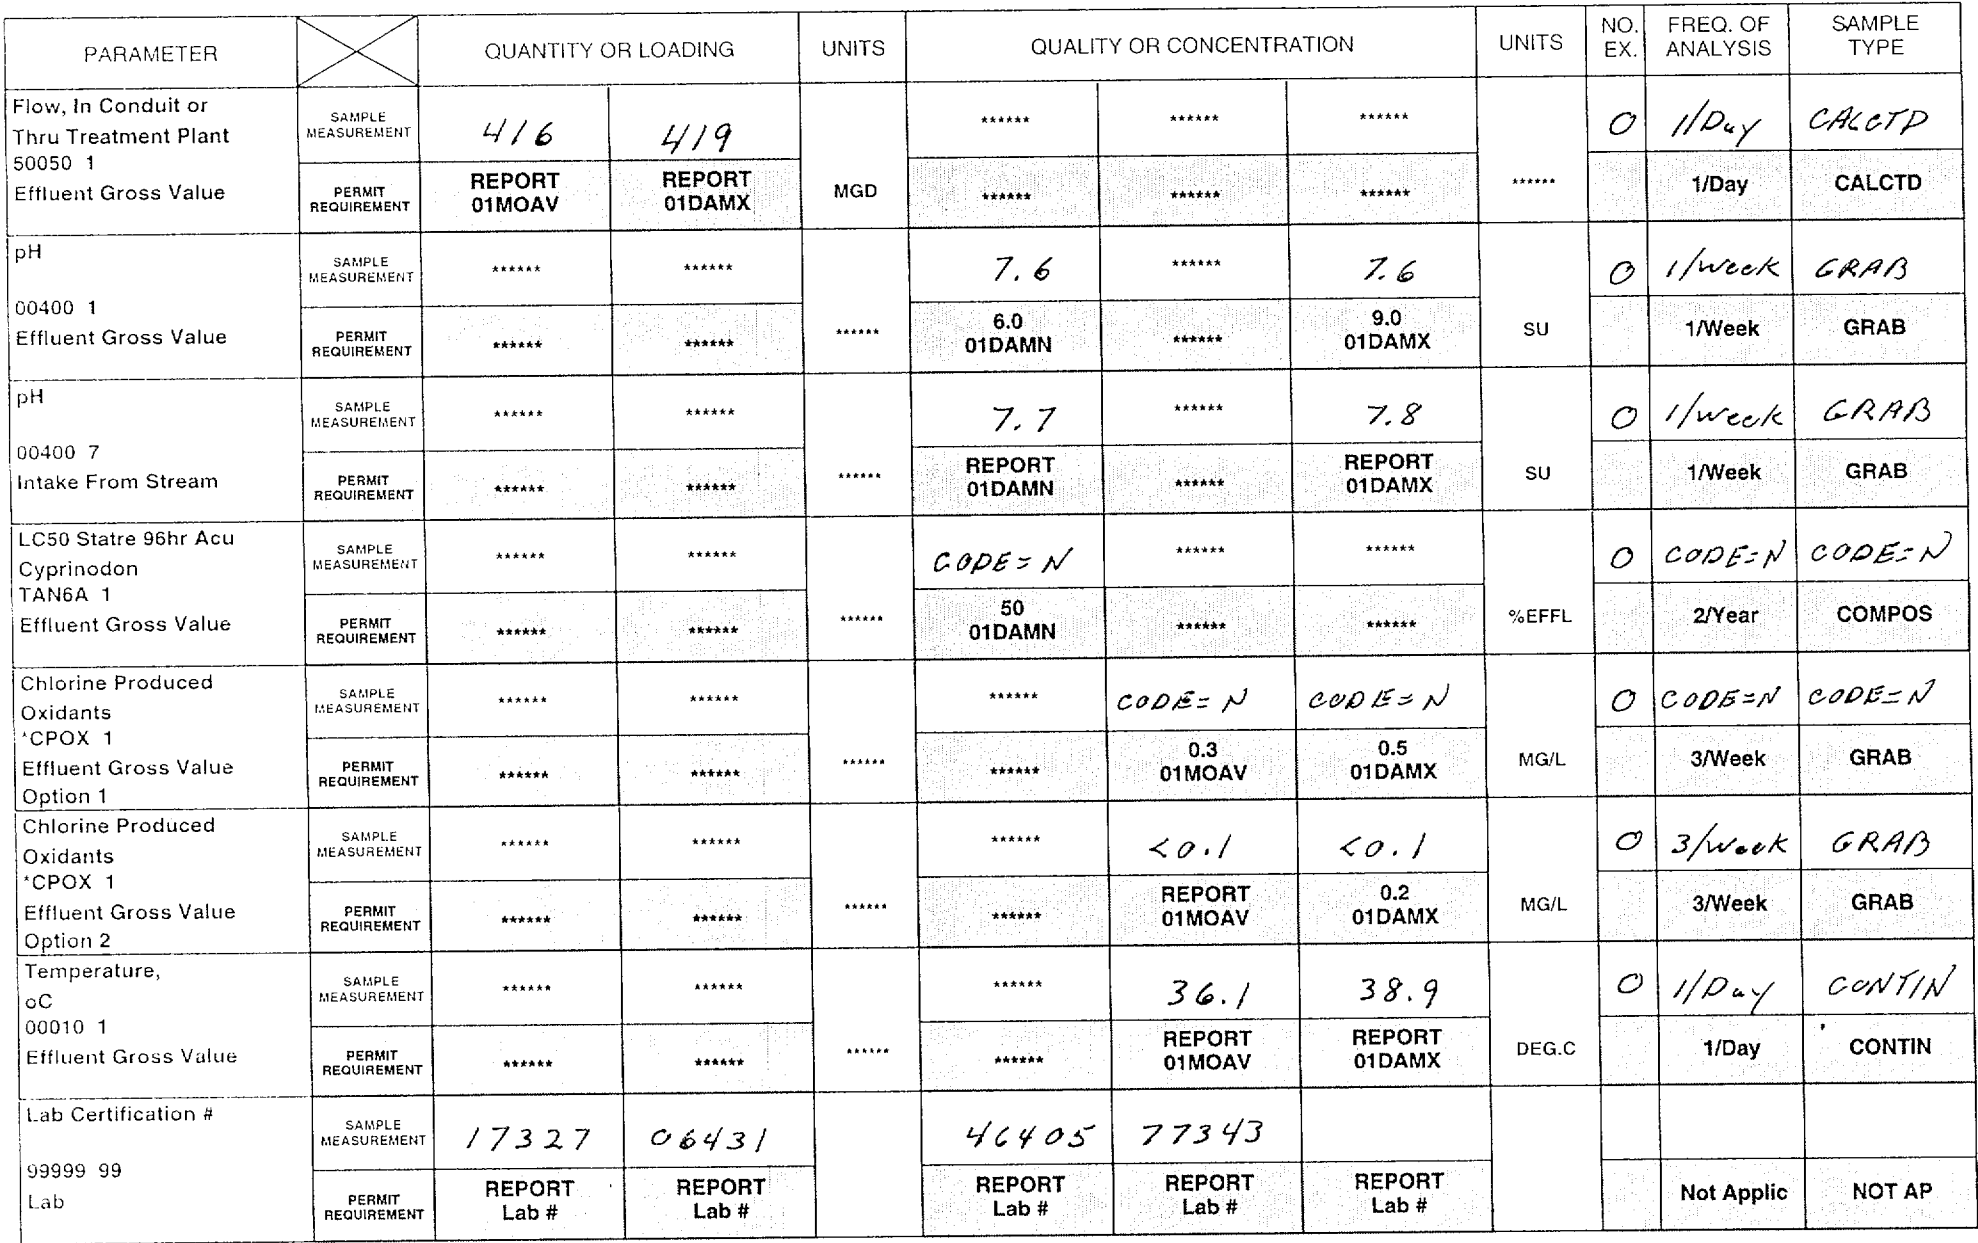 PARAMETER QUANTITY OR LOADING UNITS QUALITY OR CONCENTRATION UNITS NO. EX. FREQ. OF ANALYSIS SAMPLE TYPE
Flow, In Conduit or
Thru Treatment Plant
50050 1
Effluent Gross Value
SAMPLE MEASUREMENT 416 419 ****** ****** ****** 0 1/Day CALCTD
PERMIT REQUIREMENT REPORT 01MOAV REPORT 01DAMX MGD ****** ****** ****** ****** 1/Day CALCTD
pH
00400 1
Effluent Gross Value
SAMPLE MEASUREMENT ****** ****** 7.6 ****** 7.6 0 1/Week GRAB
PERMIT REQUIREMENT ****** ****** ****** 6.0 01DAMN ****** 9.0 01DAMX SU 1/Week GRAB
pH
00400 7
Intake From Stream
SAMPLE MEASUREMENT ****** ****** 7.7 ****** 7.8 0 1/Week GRAB
PERMIT REQUIREMENT ****** ****** ****** REPORT 01DAMN ****** REPORT 01DAMX SU 1/Week GRAB
LC50 Statre 96hr Acu
Cyprinodon
TAN6A 1
Effluent Gross Value
SAMPLE MEASUREMENT ****** ****** CODE=N ****** ****** 0 CODE=N CODE=N
PERMIT REQUIREMENT ****** ****** ****** 50 01DAMN ****** ****** %EFFL 2/Year COMPOS
Chlorine Produced
Oxidants
*CPOX 1
Effluent Gross Value
Option 1
SAMPLE MEASUREMENT ****** ****** ****** CODE=N CODE=N 0 CODE=N CODE=N
PERMIT REQUIREMENT ****** ****** ****** ****** 0.3 01MOAV 0.5 01DAMX MG/L 3/Week GRAB
Chlorine Produced
Oxidants
*CPOX 1
Effluent Gross Value
Option 2
SAMPLE MEASUREMENT ****** ****** ****** <0.1 <0.1 0 3/Week GRAB
PERMIT REQUIREMENT ****** ****** ****** ****** REPORT 01MOAV 0.2 01DAMX MG/L 3/Week GRAB
Temperature,
oC
00010 1
Effluent Gross Value
SAMPLE MEASUREMENT ****** ****** ****** 36.1 38.9 0 1/Day CONTIN
PERMIT REQUIREMENT ****** ****** ****** ****** REPORT 01MOAV REPORT 01DAMX DEG.C 1/Day CONTIN
Lab Certification #
99999 99
Lab
SAMPLE MEASUREMENT 17327 06431 46405 77343
PERMIT REQUIREMENT REPORT Lab # REPORT Lab # REPORT Lab # REPORT Lab # REPORT Lab # Not Applic NOT AP